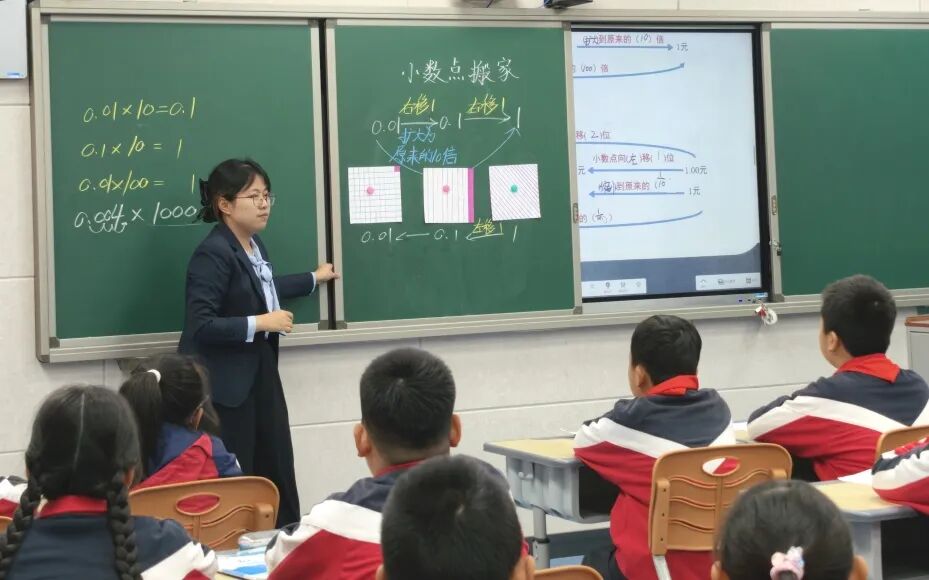 0.01×10=0.1
0.1×10= 1
0.01×100= 1
0.004×1000
小数点搬家
右移1 右移1
0.01 0.1 1
扩大为
原来的10倍
左移1
0.01 0.1 1
扩大到原来的（10）倍
1元
（100）倍
移（2）位
小数点向（左）移（1）位
元 1.00元
到原来的（1/10）
1元